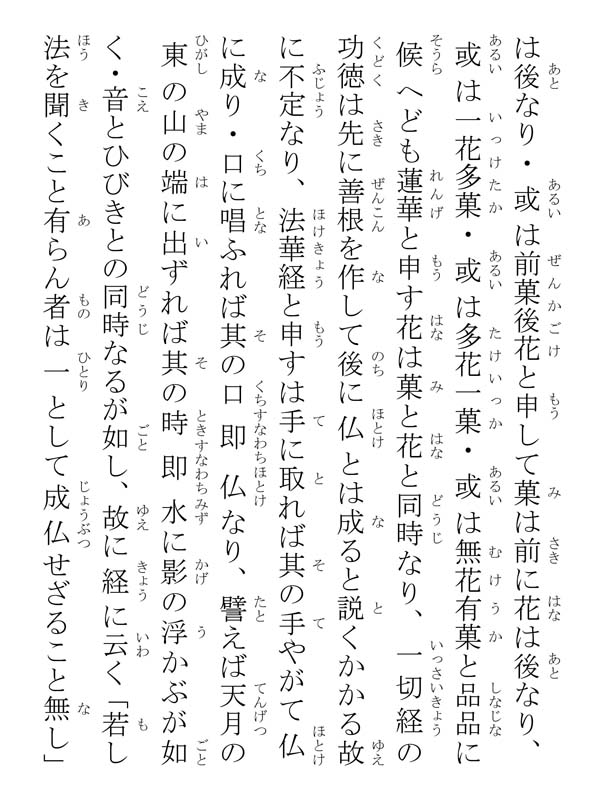 は後なり・或は前菓後花と申して菓は前に花は後なり、
或は一花多菓・或は多花一菓・或は無花有菓と品品に
候へども蓮華と申す花は菓と花と同時なり、一切経の
功徳は先に善根を作して後に仏とは成ると説くかかる故
に不定なり、法華経と申すは手に取れば其の手やがて仏
に成り・口に唱ふれば其の口即仏なり、譬えば天月の
東の山の端に出ずれば其の時即水に影の浮かぶが如
く・音とひびきとの同時なるが如し、故に経に云く「若し
法を聞くこと有らん者は一として成仏せざること無し」